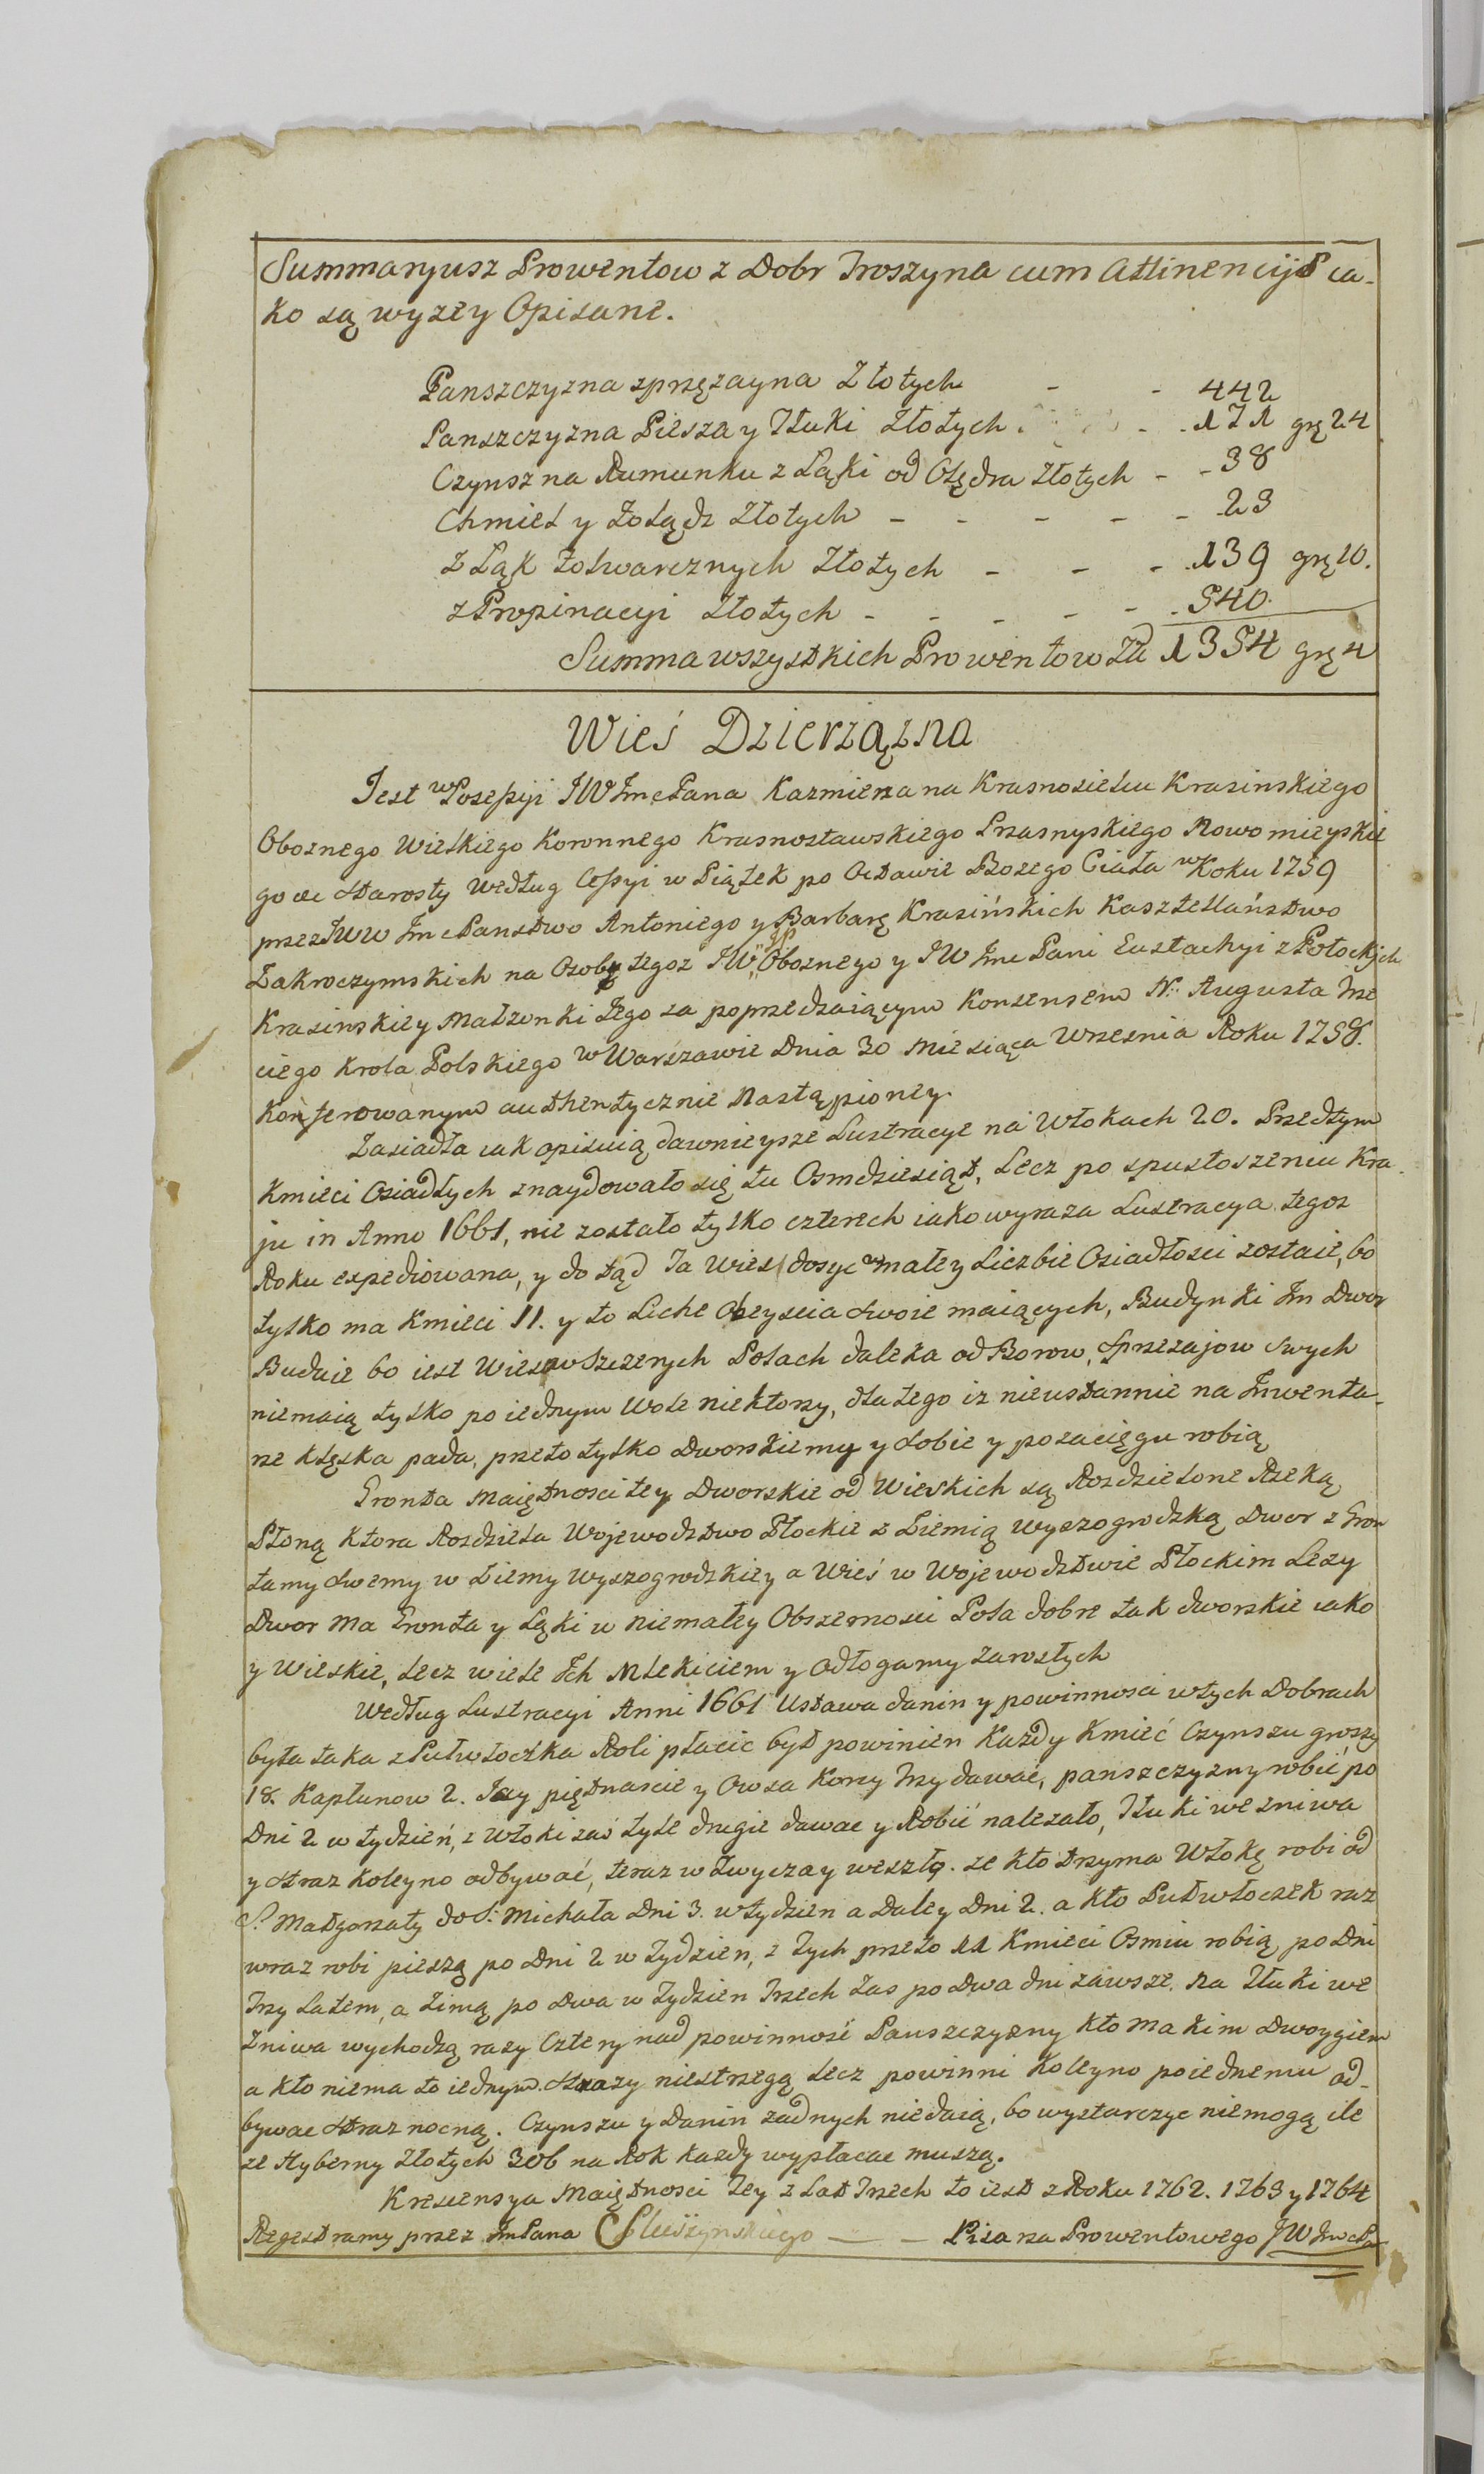 Summaryusz Prowentow z Dobr Troszyna cum Attinencijs ia-
ko są wyzey Opisane.
Panszczyzna zprzęzayna Złotych - - 442
Panszczyzna Piesza y Tłuki Złotych - - 171 grę 24
Czynsz na Rumunku z Łąki od Olędra Złotych - - 38
Chmiel y Zołądz Złotych - - - - - 23
Z Łąk folwarcznych Złotych - - - 139 grę 10.
z Propinacyi Złotych - - - - - 540.
Summa wszystkich Prowentow Zł 1354 grę 4
Wieś Dzierzązna
Jest w Posessyi JW Jmć Pana Kazmierza na Krasnosielcu Krasinskiego
Oboznego Wielkiego Koronnego Krasnostawskiego Przasnyskiego Nowomieyskie
go &c Starosty według Cessyi w Piątek po Octawie Bozego Ciała w Roku 1759
przez JWW Jmć Panstwo Antoniego y Barbarę Krasińskich Kasztellaństwo
Zakroczymskich na Osobę tegoz JW JP Oboznego y JW Jmć Pani Eustachyi z Potockich
Krasinskiey Małzonki Jego za poprzedzaiącym Konsensem N: Augusta Trze
ciego Krola Polskiego w Warszawie Dnia 30 Miesiąca Wrzesnia Roku 1758.
Konferowanym authentycznie Nastąpioney.
Zasiadła iak opisuią dawnieysze Lustracye na Włokach 20. Przedtym
Kmieci Osiadłych znaydowało się tu Osmdziesiąt, Lecz po spustoszeniu Kra-
ju in Anno 1661, nie zostało tylko czterech iako wyraza Lustracya tegoz
Roku expediowana, y do tąd Ta Wies dosyc w małey Liczbie Osiadłosci zostaie, bo
tylko ma Kmieci 11. y to Liche Obeyscia swoie maiących, Budynki Im Dwor
Buduie bo iest Wies w Szczerych Polach daleka od Borow, Sprzezajow swych
niemaią tylko po iednym Wole niektorzy, dla tego iz nieustannie na Inwenta-
rze klęska pada, przeto tylko Dworskiemy y sobie y pozaciegu robią
Gronta Maiętnosci tey Dworskie od Wieskich są Rozdzielone Rzeką
Płoną ktora Rozdziela Wojewodztwo Płockie z Ziemią Wyszogrodzką Dwor z Gron
tamy swemy w Ziemy Wyszogrodzkiey a Wieś w Wojewodztwie Płockim Lezy
Dwor Ma Gronta y Łąki w niemałey Obszernosci Pola dobre tak dworskie iako
y Wieskie, lecz wiele Ich Mlekiciem y Odłogamy zarosłych
Według Lustracyi Anni 1661 Ustawa danin y powinnosci wtych Dobrach
była taka z Pułwłoczka Roli płacic był powinien Każdy Kmieć Czynszu groszy
18. Kapłunow 2. Jay piętnascie y Owsa Korcy Trzy dawać, panszczyzny robić po
Dni 2 w tydzień, z Włoki zaś tyle drugie dawac y Robić nalezało, Tłuki we zniwa
y straz koleyno odbywać, teraz w Zwyczay weszło. ze kto trzyma Włokę robi od
S: Małgorzaty do S: Michała Dni 3. w tydzien a Daley Dni 2. a kto Pułwłoczek raz
wraz robi pieszą po Dni 2 w Tydzien, z Tych przeto 11 Kmieci Osmiu robią po Dni
Trzy Latem, a Zimą po Dwa w Tydzien Trzech Zas po Dwa dni zawsze. Na Tłuki we
Zniwa wychodzą razy Cztery nad powinność Panszczyzny kto ma kim Dwoygiem
a kto niema to iednym. Strazy niestrzegą lecz powinni koleyno poiednemu od-
bywac straz nocną. Czynszu y Danin zadnych niedaią, bo wystarczyc niemogą ile
ze Hyberny Złotych 306 na Rok kazdy wypłacac muszą.
Krescensya Maiętnosci Tey z Lat Trzech to iest z Roku 1762. 1763 y 1764
Regestramy przez Im Pana - Pisarza Prowentowego JW Jmć Pa